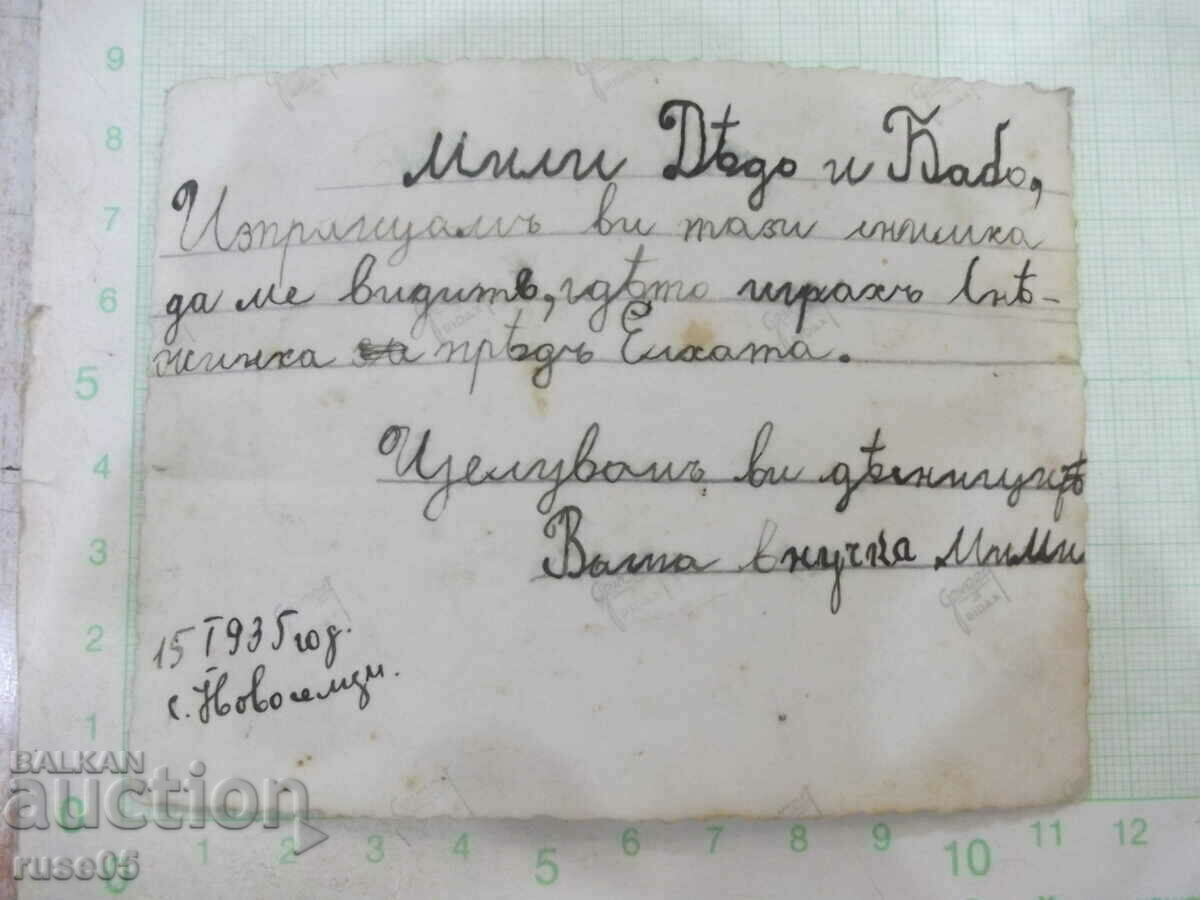 Мили Дѣдо и Бабо,
Изпращамъ ви тази снимка
да ме видите, гдѣто играхъ Снѣ-
жинка за прѣдъ Елхата.
Целувамъ ви дѣсницитѣ
Ваша внучка Мими
15 I 935 год.
с. Новоселци.
BALKAN
auction
ruse05
9
8
7
6
5
4
3
2
1
0
1
2
3
4
5
6
7
8
9
10
11
12